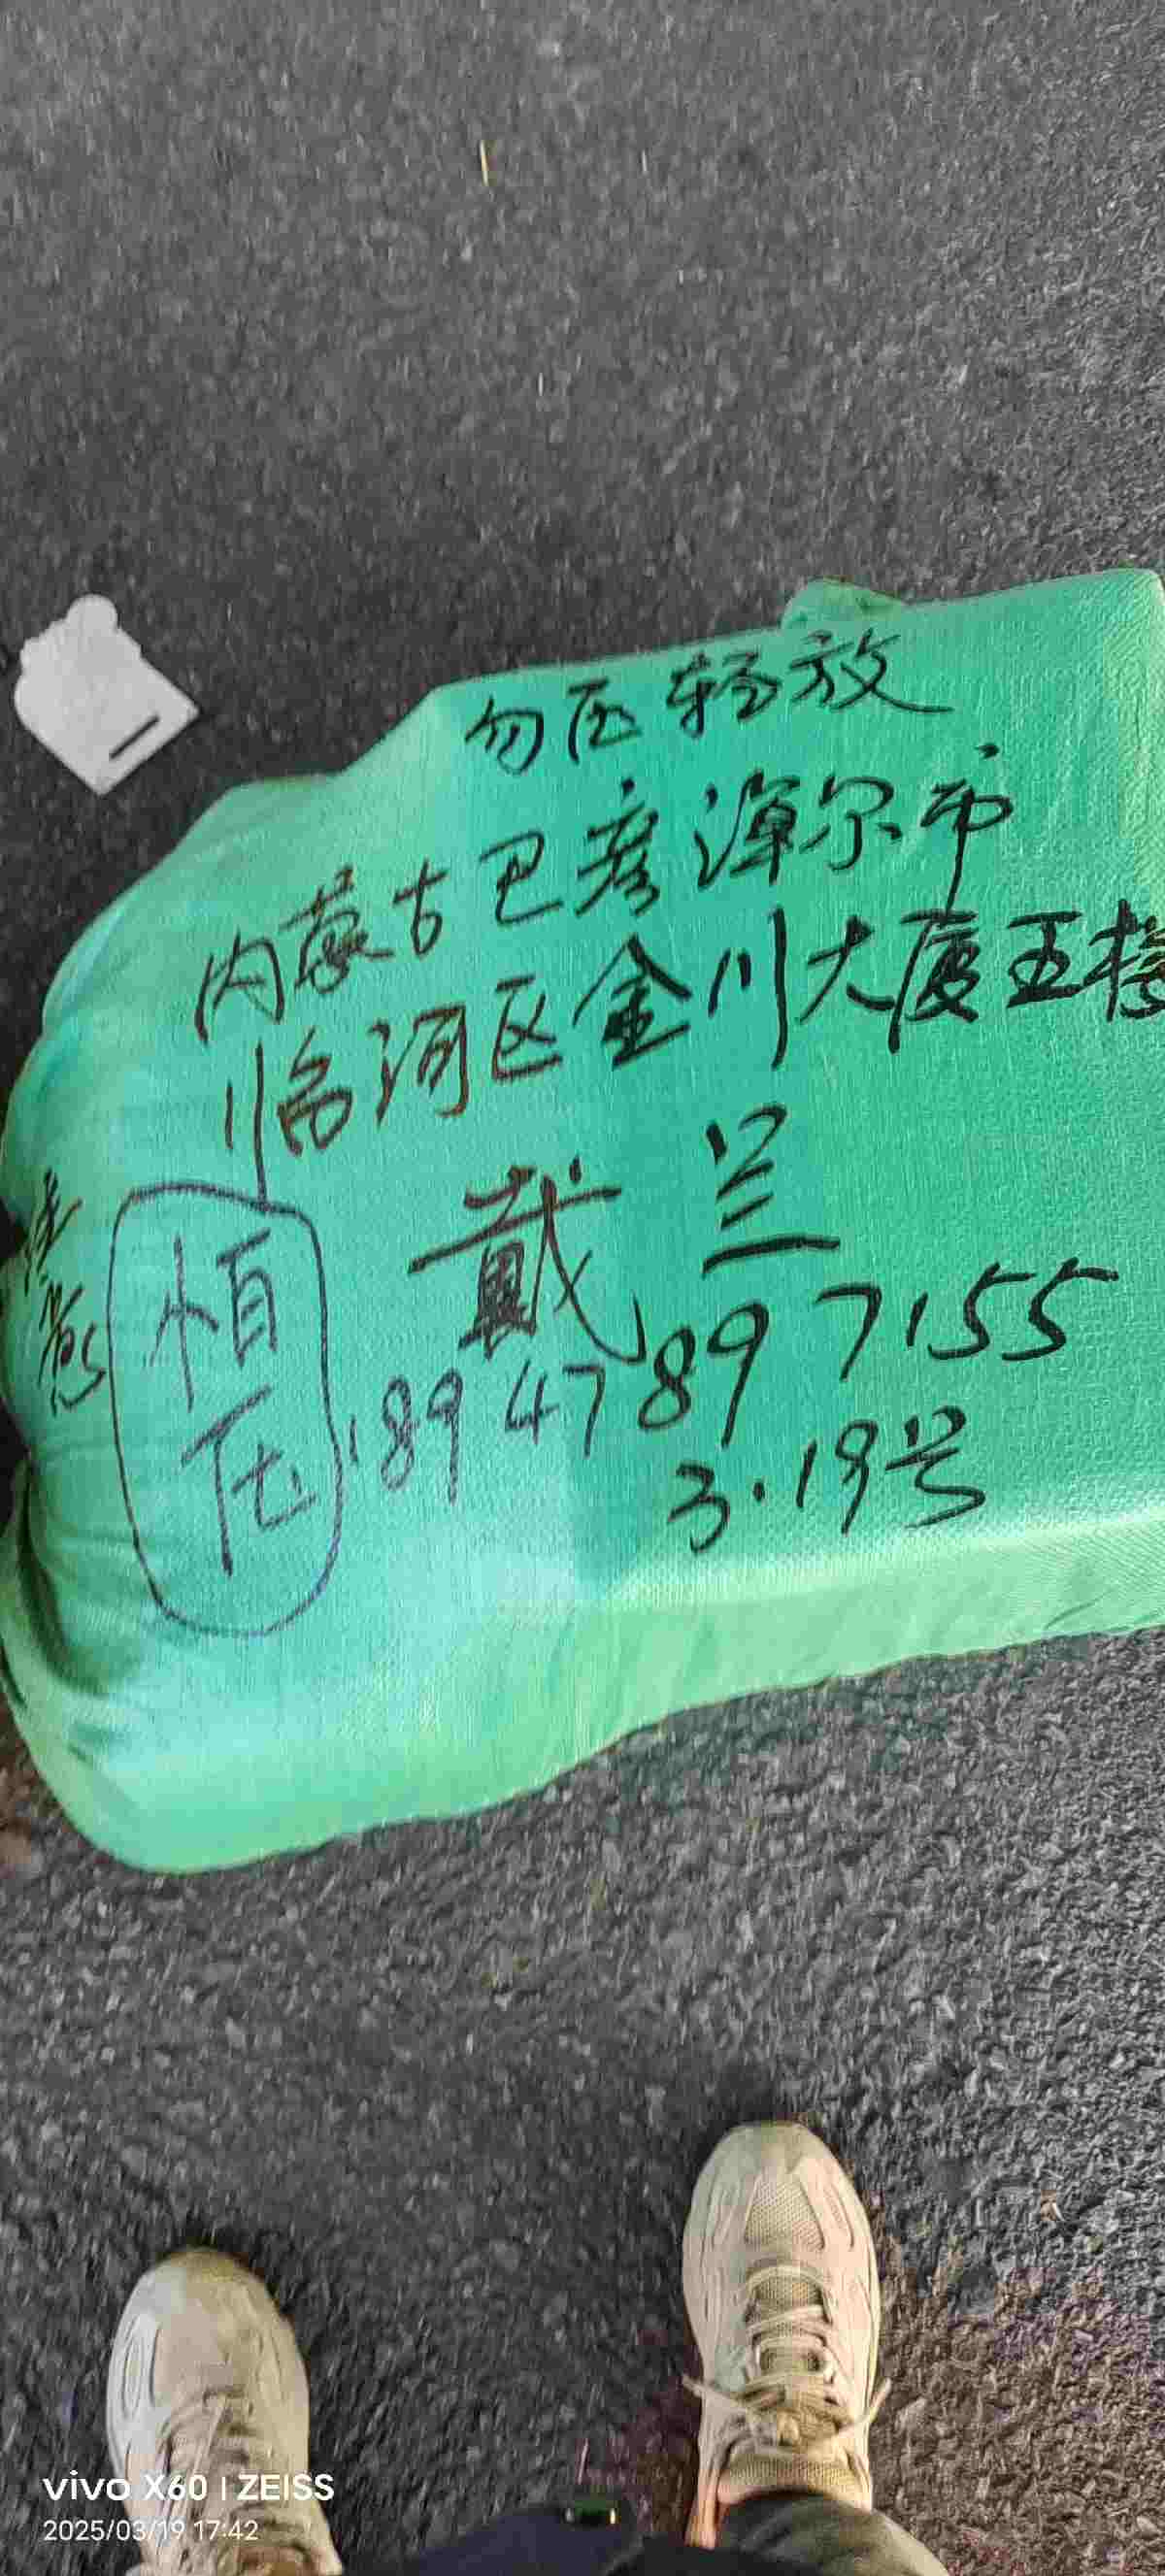 勿压轻放
内蒙古巴彦淖尔市
临河区金川大厦五楼
戴兰
189 4789 7155
3.19号
怕
压
vivo X60 | ZEISS
2025/03/19 17:42